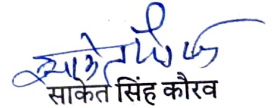 साकेत सिंह कौरव